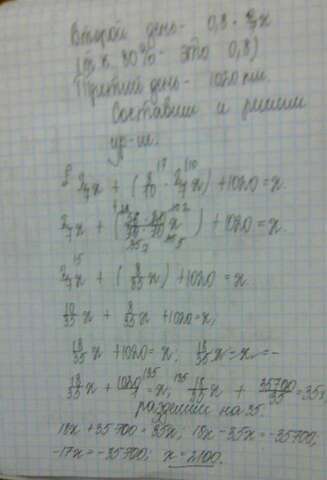 Второй день - 0,8 · 2/7x
(т.к 80% - это 0,8)
Третий день - 1020 км.
Составим и решим
ур-и.
2/7x + (8/10 · 2/7x) + 1020 = x.
2/7x + ( x) + 1020 = x.
2/7x + (8/35x) + 1020 = x
10/35x + 8/35x + 1020 = x,
18/35x + 1020 = x; 18/35x - x = -
18/35x + 1020/1 = x; 18/35x + 35700/35 = 35x
разделим на 35.
18x + 35700 = 35x; 18x - 35x = -35700;
-17x = -35700; x = 2100.